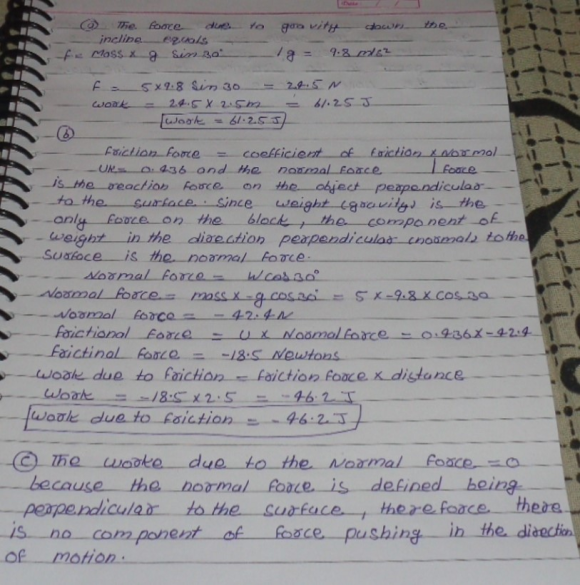 (a) The force due to gravity down the
incline equals
f = mass x g sin 30° / g = 9.8 m/s²
F = 5 x 9.8 Sin 30 = 24.5 N
work = 24.5 x 2.5m = 61.25 J
work = 61.25 J
(b)
friction force = coefficient of friction x Normal
UK = 0.436 and the normal force | force
is the reaction force on the object perpendicular
to the surface. Since weight (gravity) is the
only force on the block, the component of
weight in the direction perpendicular (normal) to the
surface is the normal force.
Normal force = W cos 30°
Normal force = mass x -g cos 30 = 5 x -9.8 x cos 30
Normal force = - 42.4 N
frictional force = U x Normal force = 0.436 x -42.4
frictinal force = -18.5 Newtons
work due to friction = friction force x distance
work = -18.5 x 2.5 = -46.2 J
work due to friction = - 46.2 J
(c) The worke due to the Normal force = 0
because the normal force is defined being
perpendicular to the surface, therefore there
is no component of force pushing in the direction
of motion.